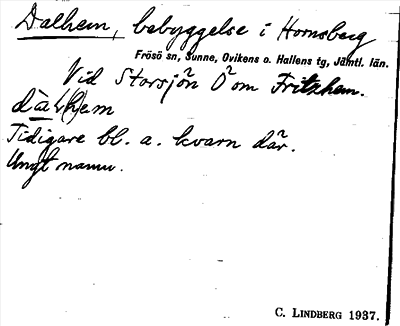 Dalhem, bebyggelse i Hornsberg
Frösö sn, Sunne, Ovikens o. Hallens tg, Jämtl. län.
Vid Storsjön Ö om Fritzhem.
dà L(h)em
Tidigare bl. a. kvarn där.
Ungt namn.
C. LINDBERG 1937.